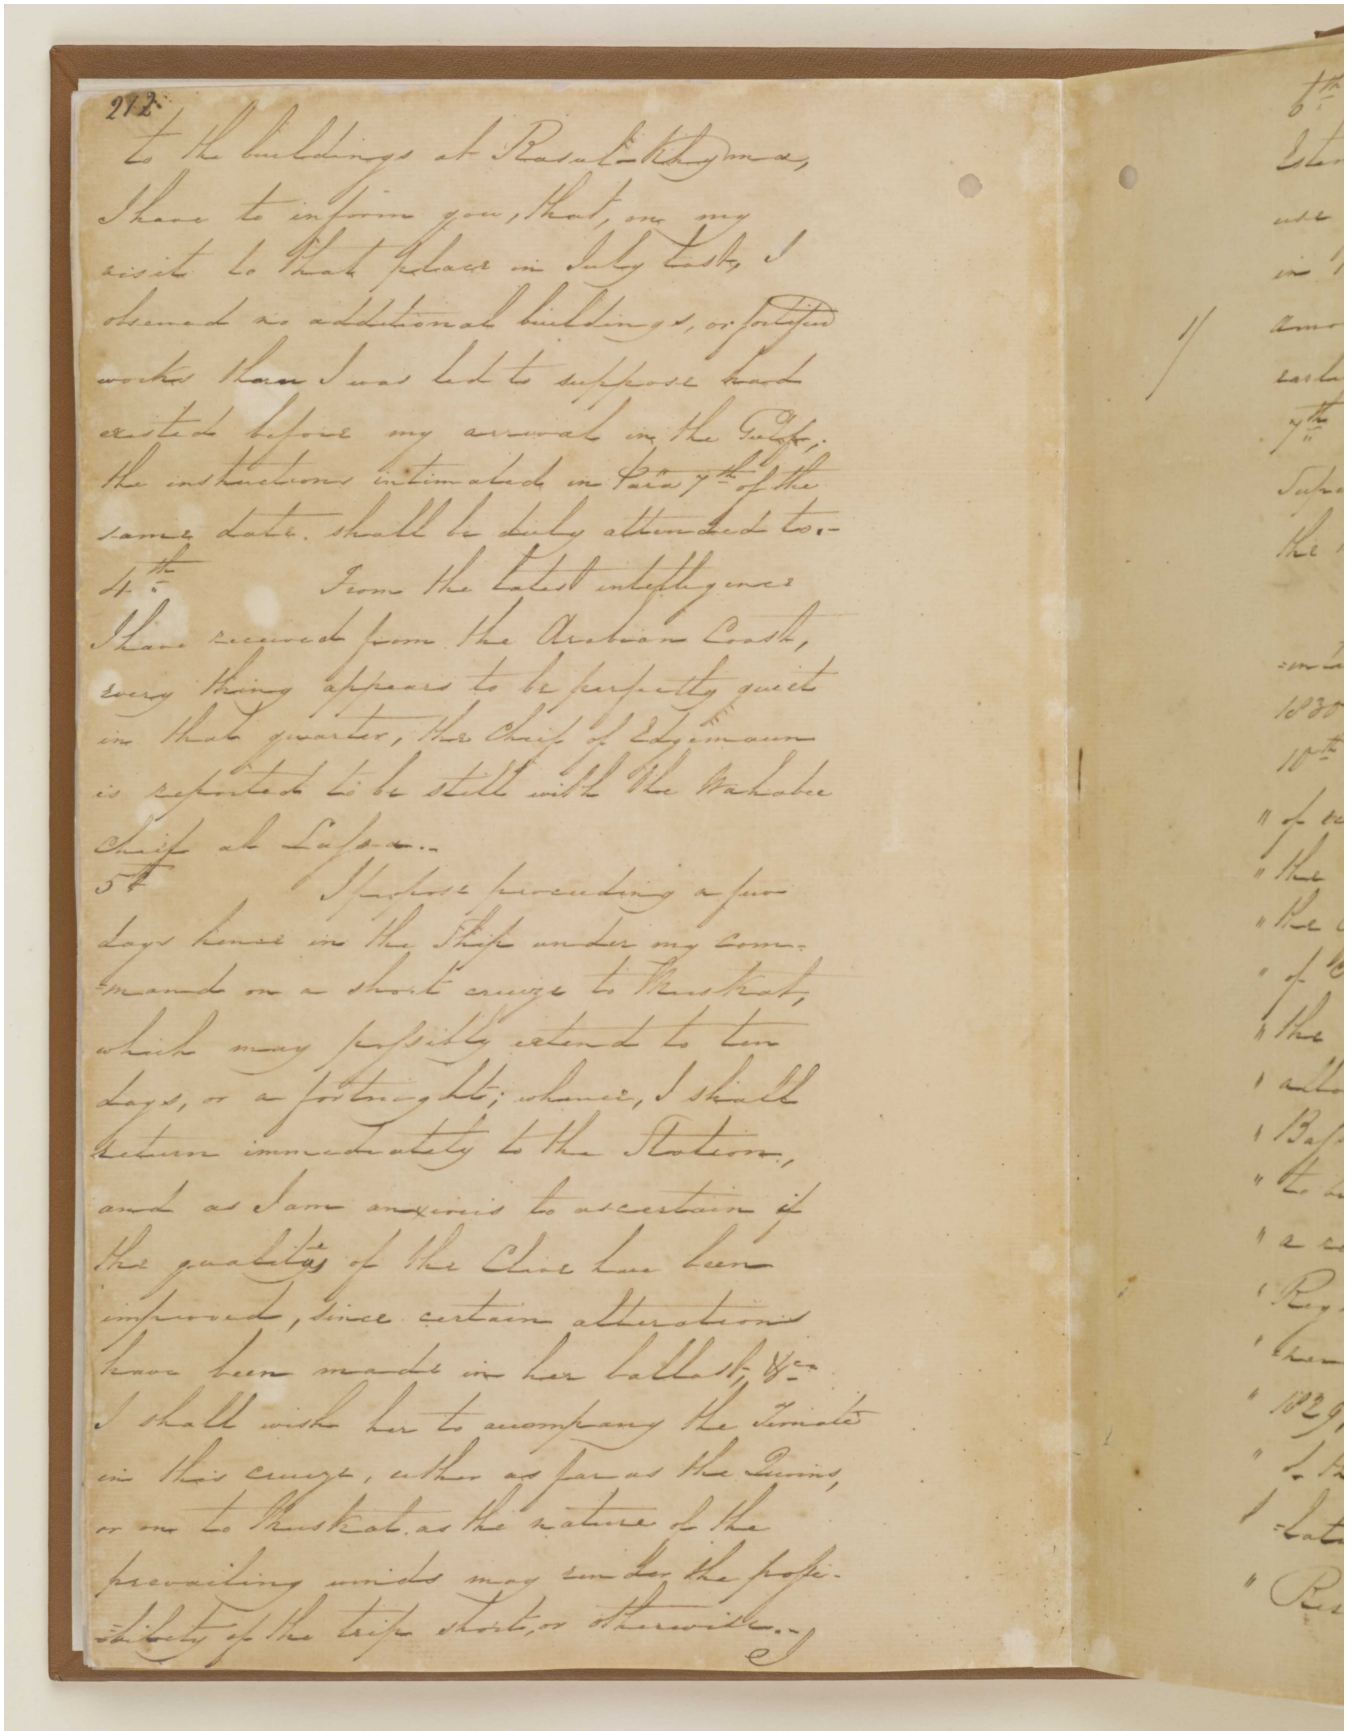 212
to the buildings at Rasul-Khyma,
I have to inform you, that, on my
visit to that place in July last, I
observed no additional buildings, or fortified
works than I was led to suppose had
existed before my arrival in the Gulf;
the instructions intimated in Para 7th of the
same date. shall be duly attended to.-
4th From the latest intelligence
I have received from the Arabian Coast,
every thing appears to be perfectly quiet
in that quarter, the Cheif of Edgmaun
is reported to be still with the Wahabee
Cheif at Lafsa..
5th I propose proceeding a few
days hence in the Ship under my com-
=mand on a short cruize to Muskat,
which may possibly extend to ten
days, or a fortnight; whence, I shall
return immediately to the Station,
and as I am anxious to ascertain if
the qualities of the Clive have been
improved, since certain alterations
have been made in her ballast, &ca
I shall wish her to accompany the Ternate
in this cruize, either as far as the Quoins,
or on to Muskat. as the nature of the
prevailing winds may render the possi-
=bility of the trip short, or otherwise.-
I
6th
use
in
1/
7th
the
1830
10th
" of
" the
" the
" of
" the
"
"
" to
" a
'
'
" 1829,
"
"